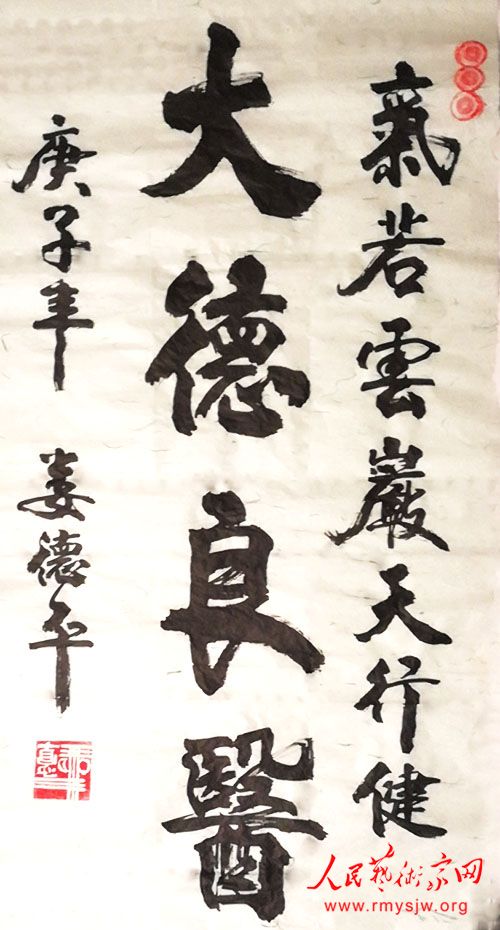 氣若雲巖天行健
大德良醫
庚子年 姜德平
人民藝術家网
www.rmysjw.org